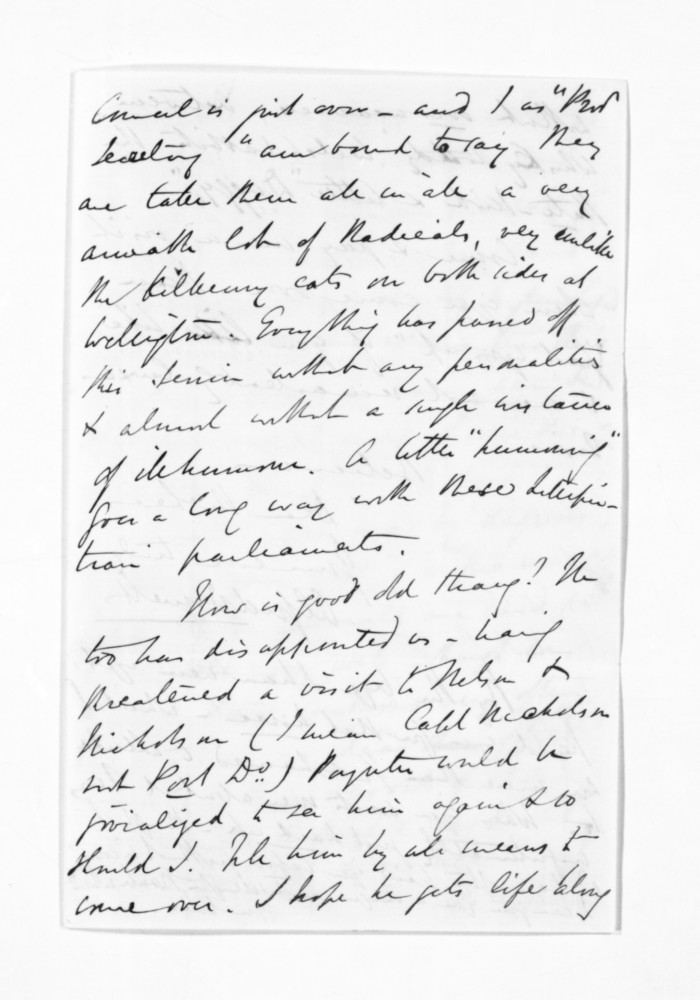 Council is just over - and I as "Prov
Secretary" am bound to say they
are take them all in all a very
amiable lot of Radicals, very unlike
the Kilkenny cats on both sides at
Wellington. Everything has passed off
this Session without any personalities
& almost without a single instance
of ill humour. A little "humouring"
goes a long way with these Lilliputian
parliaments.
How is good old Strang? He
too has disappointed us - having
threatened a visit to Nelson &
Nicholson (I mean Cabl Nicholson
not Port Do.) Poynter would be
jovialized to see him again & so
should I. Tell him by all means to
come over. I hope he gets life along